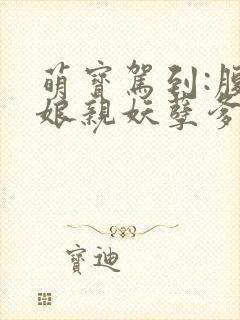 萌寶駕到:腹
娘親妖孽爹
寶迪